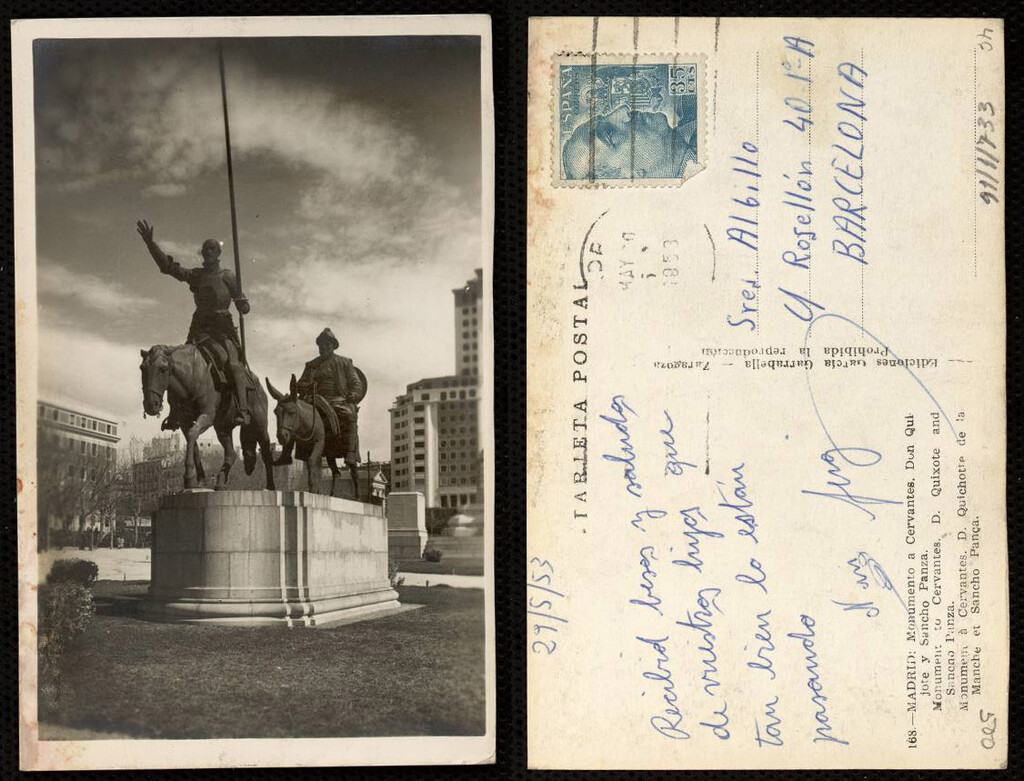 TARJETA POSTAL
29/5/53
Recibid besos y saludos
de vuestros hijos que
tan bien lo están
pasando
168.—MADRID: Monumento a Cervantes. Don Qui-
jote y Sancho Panza.
Monument to Cervantes. D. Quixote and
Sancho Panza.
Monument à Cervantes. D. Quichotte de la
Manche et Sancho Pança.
Ediciones García Garrabella — Zaragoza
Prohibida la reproducción
ESPAÑA
35 CTS
MAY
1953
Sres. Albillo
Rosellón 40 1º A
BARCELONA